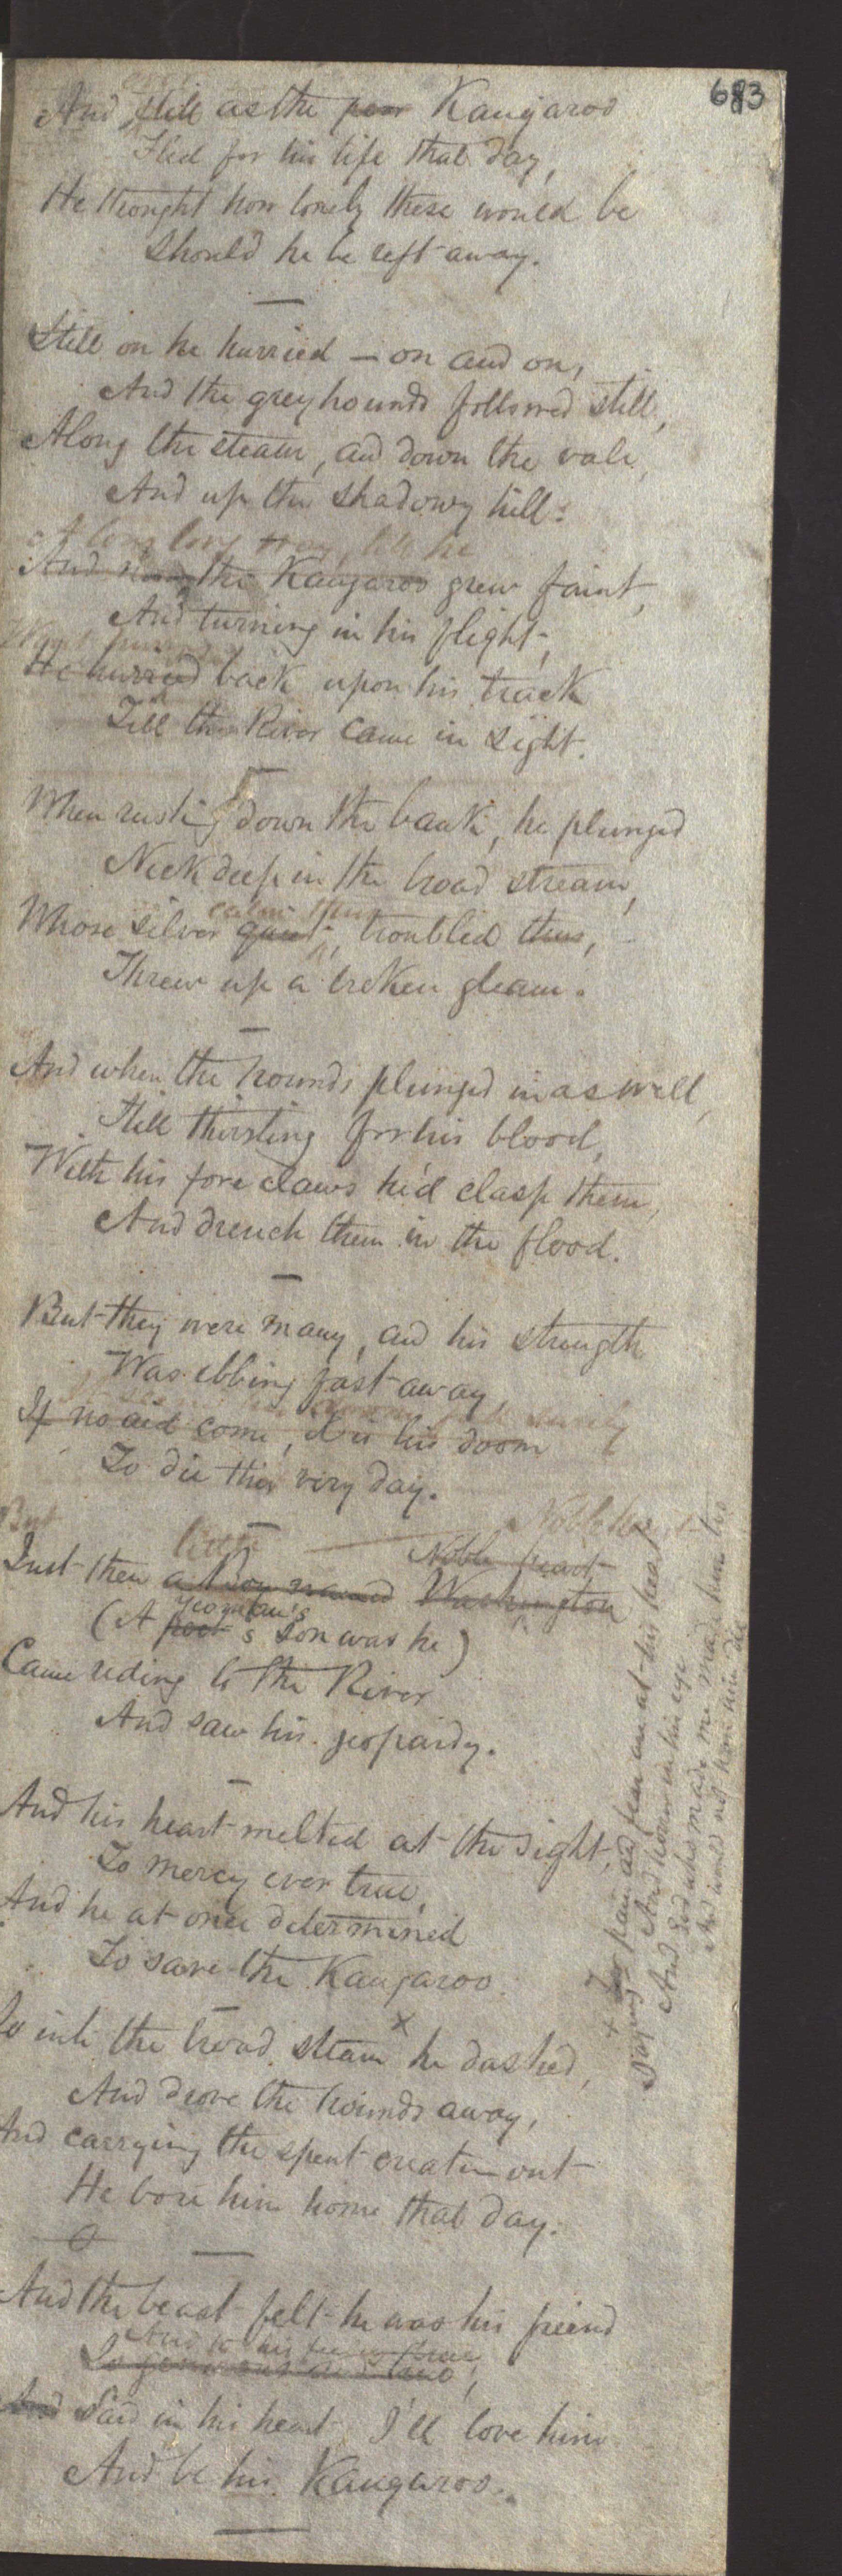 683
ever
And still as the poor Kangaroo
Fled for his life that day,
He thought how lonely these would be
Should he be reft away.
Still on he hurried — on and on,
And the greyhounds followed still,
Along the steam, and down the vale,
And up the shadowy hill:
A long long way, till he
And now the Kangaroo grew faint,
And turning in his flight,
He hurried back upon his track
Till the River came in sight.
When rushing down the bank, he plunged
Neck deep in the broad stream,
calm
Whose silver quiet, troubled thus,
Threw up a broken gleam.
And when the hounds plunged in as well,
Still thirsting for his blood,
With his fore claws he'd clasp them,
And drench them in the flood.
But they were many, and his strength
Was ebbing fast away,
surely
If no aid come, it is his doom
To die this very day.
But Noble heart
little Noble heart
Just then a Boy named Washington
yeoman's
(A poet's son was he)
Came riding to the River
And saw his jeopardy.
And his heart melted at the sight,
To mercy ever true,
And he at once determined
To save the Kangaroo.
So into the broad steam x he dashed,
And drove the hounds away,
And carrying the spent creature out
He bore him home that day.
And the beast felt he was his friend
And to his
So generous and true,
And Said in his heart, I'll love him
And be his Kangaroo.
x For pain and fear are at his heart
Saying
And horror in his eye
And God who made me made him too
And would not have him die